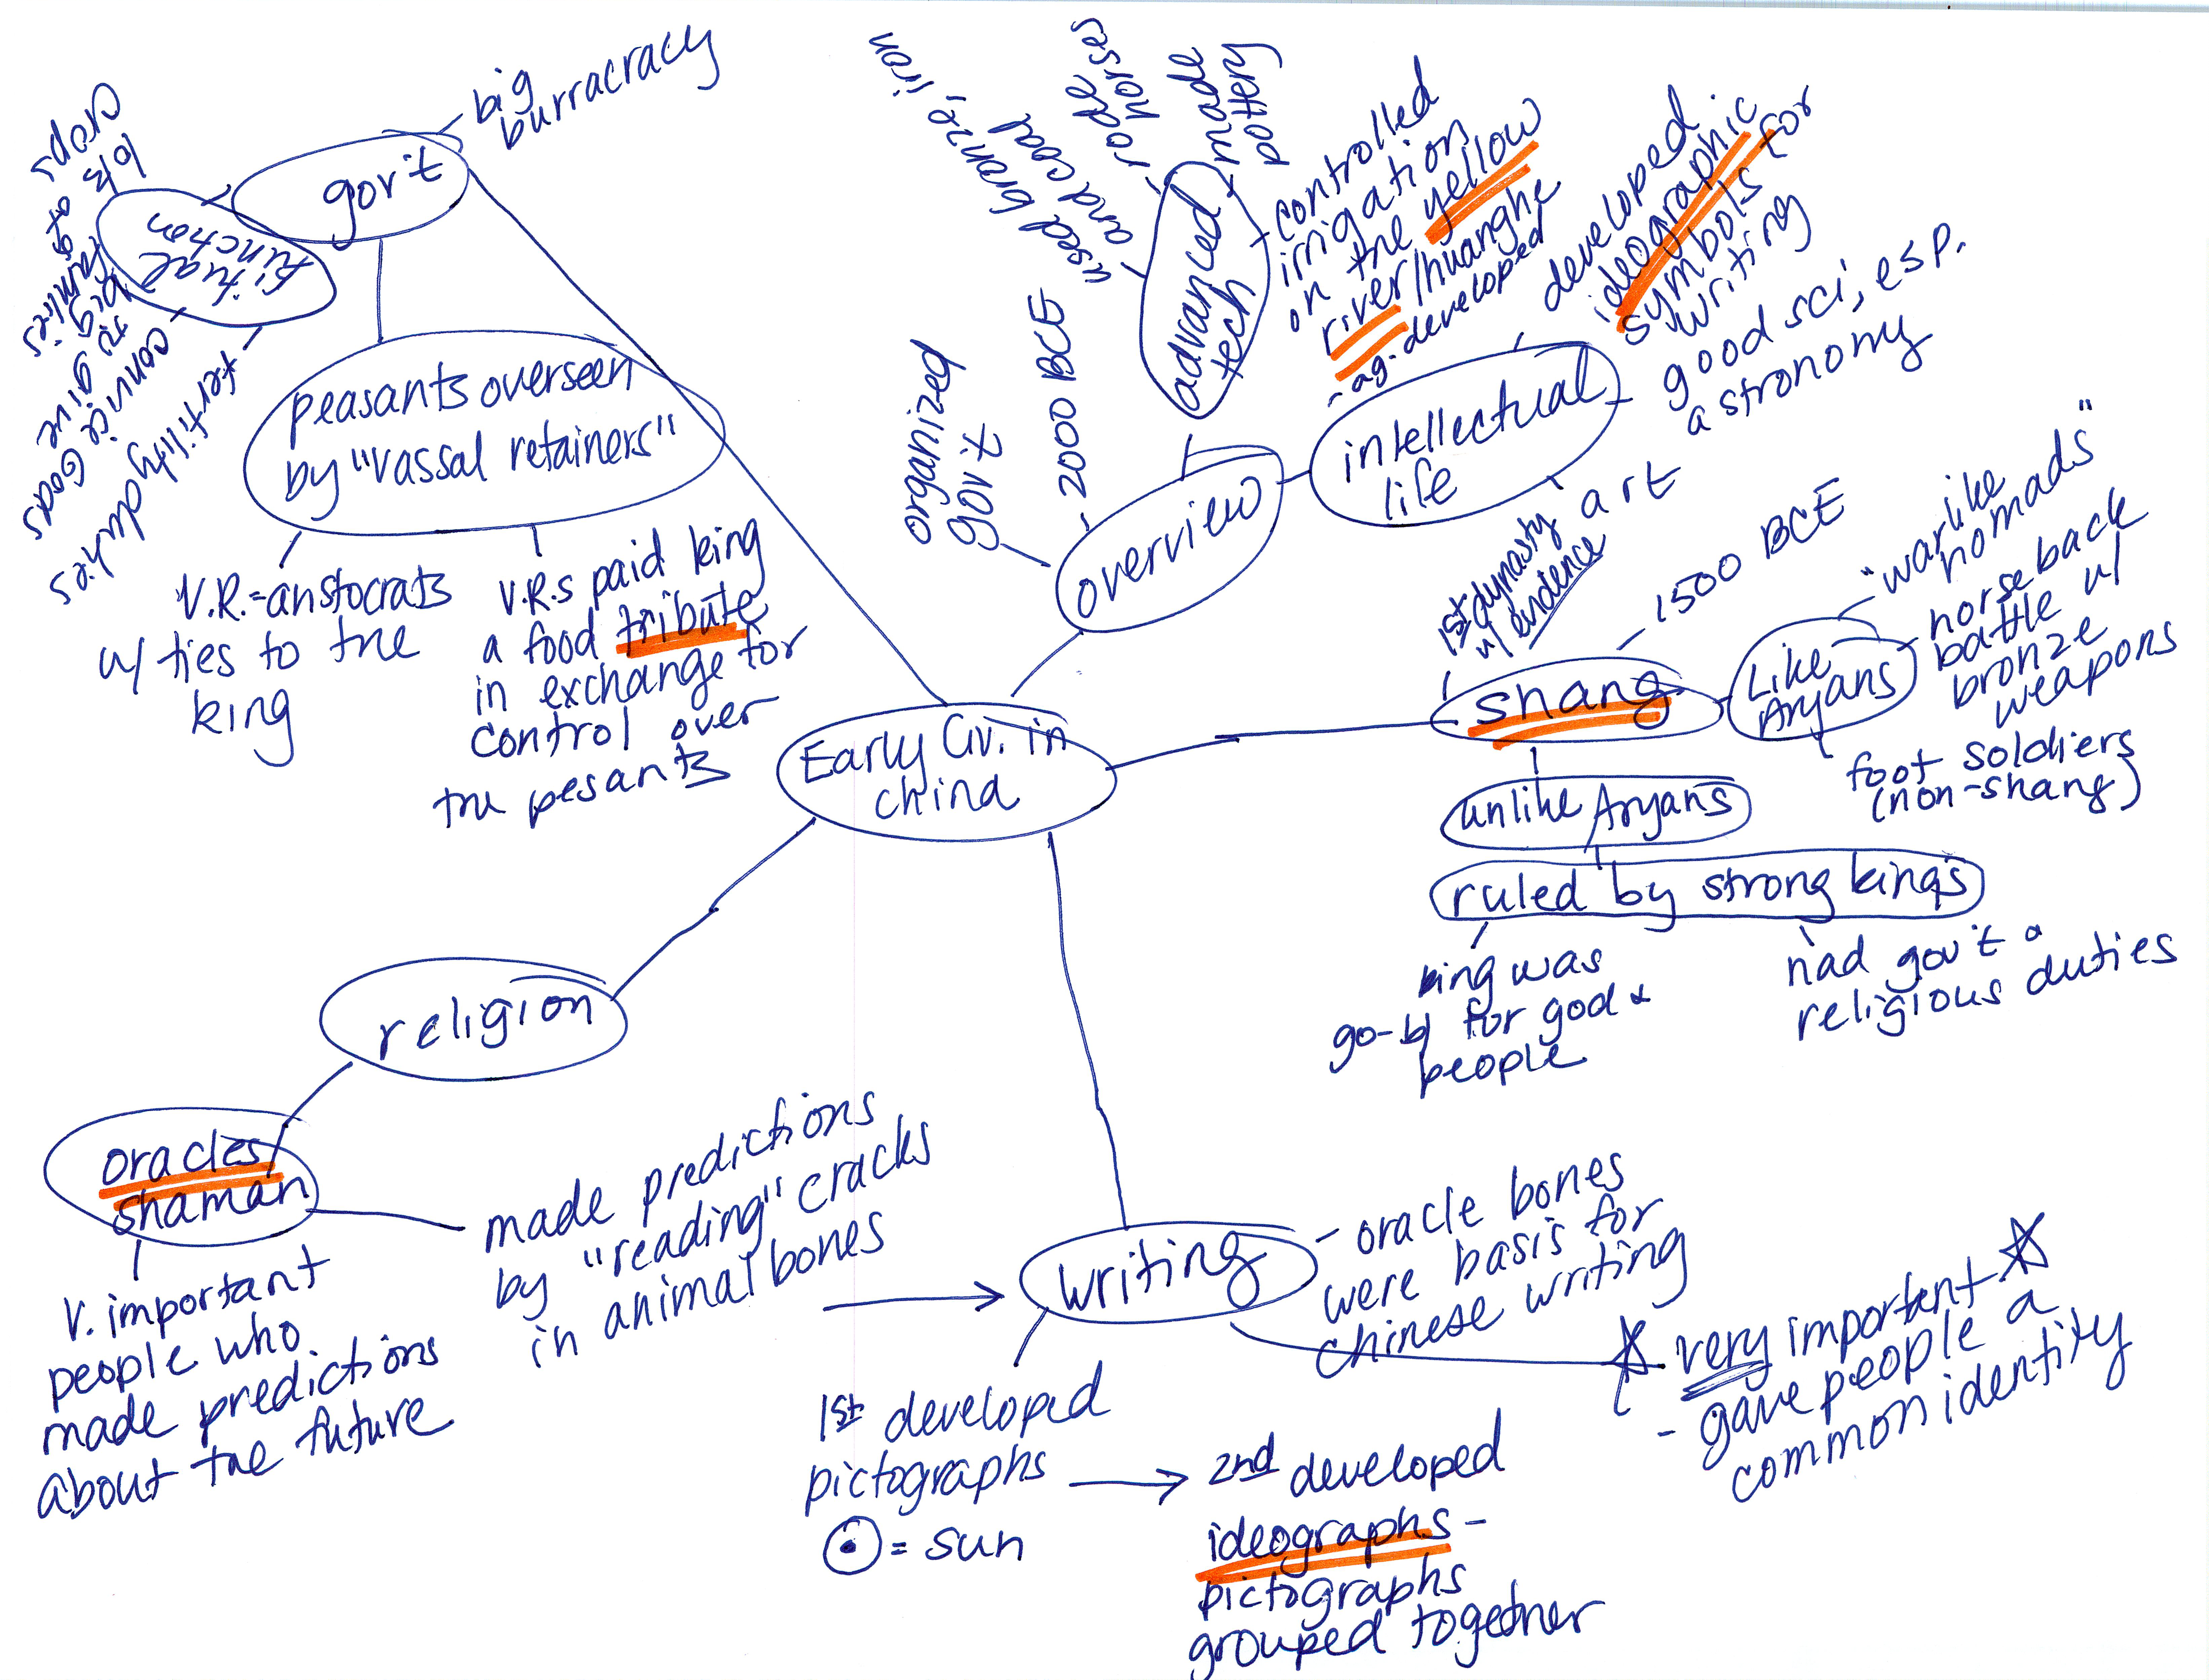 Early Civ. in
china
gov't
big
burracracy
ritual
function
fertility
convince Gods
to give
big
families
crops
peasants overseen
by "vassal retainers"
V.R.=aristocrats
w/ ties to the
king
V.R.s paid king
a food tribute
in exchange for
control over
the pesants
overview
organized
gov't
- 2000 BCE
advanced
tech
used bronze, iron
and coal
rode
horses
made
pottery
controlled
irrigation
on the yellow
river/huanghe
- ag. developed
intellectual
life
developed
ideographic
symbols for
writing
good sci, esp.
astronomy
art
shang
1st dynasty
w/ evidence
1500 BCE
Like
Aryans
"warlike
nomads"
horseback
battle w/
bronze
weapons
foot soldiers
(non-shang)
unlike Aryans
ruled by strong kings
king was
go-b/ for god &
people
had gov't &
religious duties
religion
oracles/
shaman
v. important
people who
made predictions
about the future
made predictions
by "reading" cracks
in animal bones
writing
- oracle bones
were basis for
chinese writing
very important
- gave people a
common identity
1st developed
pictographs
= sun
2nd developed
ideographs -
pictographs
grouped together